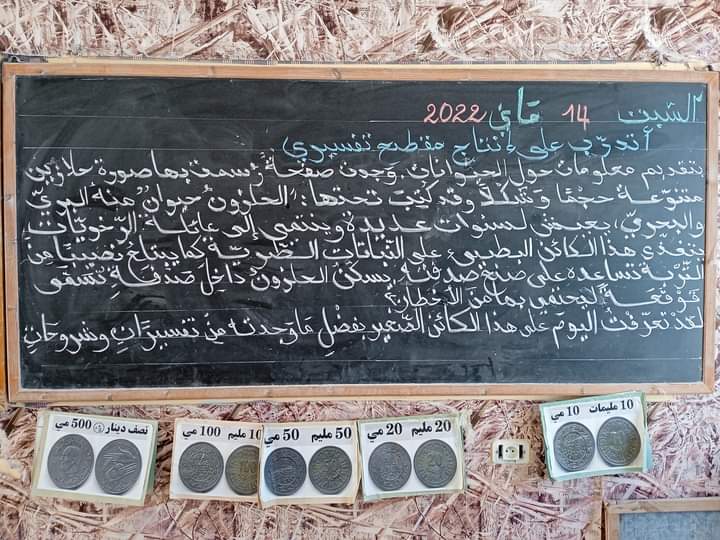 السّبت 14 ماي 2022
أتدرّب على إنتاج مقطع تفسيري
بتقديم معلومات حول الحيوانات. وجدت صفحة رسمت بها صورة حلازين
متنوّعة حجمًا وَشكلًا وقد كتِبَ تحتها: "الحلزونُ حيوانٌ منه البريّ
والبحريّ، يعيش لسنوات عديدة وينتمي إلى عائلة الرّخويّات
يتغذى هذا الكائن البطيء على النّباتات الطّريّة كما يبتلع نصيبًا من
التّربة تساعده على صنع صدفته. يسكن الحلزونُ داخِلَ صَدَفَةٍ تُسَمّى
قَوْقَعَةً ليحتمي بها من الأخطار"
لقد تعرّفْتُ اليومَ على هذا الكائن الصّغير بفضلِ مَا وَجدته منْ تفسيرَاتٍ وشروحَاتٍ
نصف دينار 500 مي
مليم 100 مي
50 مليم 50 مي
20 مليم 20 مي
10 مليمات 10 مي